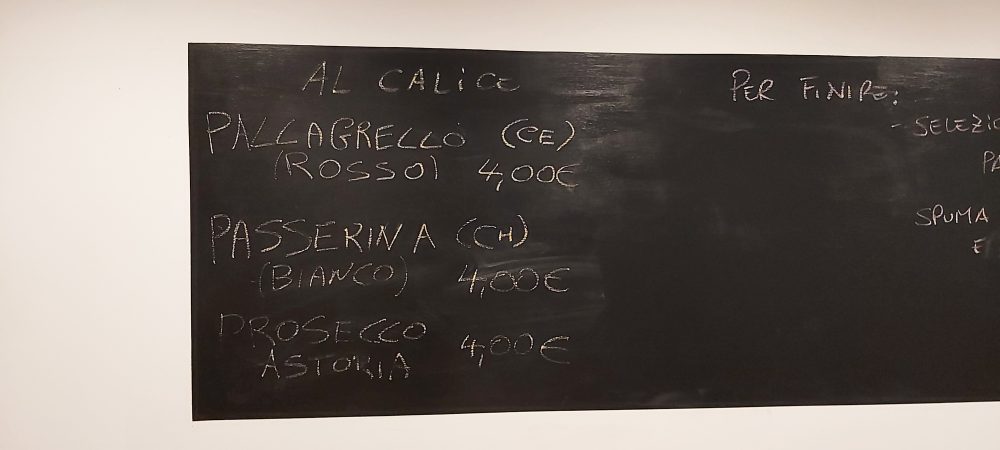 AL CALICE
PALLAGRELLO (CE)
(ROSSO) 4,00€
PASSERINA (CH)
(BIANCO) 4,00€
PROSECCO
ASTORIA 4,00€
PER FINIRE:
- SELEZIO
PA
SPUMA
E